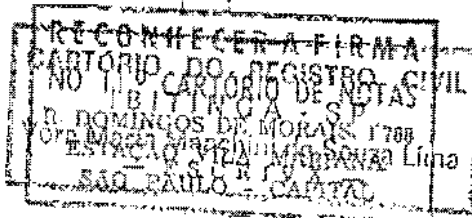 RECONHECER A FIRMA
CARTÓRIO DO REGISTRO CIVIL
NO 11º CARTÓRIO DE NOTAS
IBITINGA - SP
R. DOMINGOS DE MORAIS, 1788
ESTAÇÃO VILA MARIANA Lima
SÃO PAULO - CAPITAL